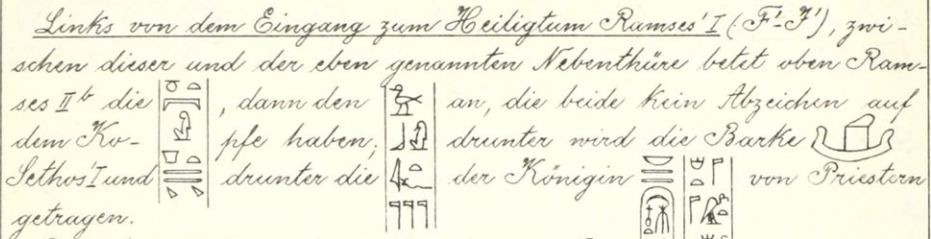 Links von dem Eingang zum Heiligtum Ramses' I (F'-J'), zwi-
schen dieser und der eben genannten Nebenthüre betet oben Ram-
ses IIᵇ die , dann den an, die beide kein Abzeichen auf
dem Ko- pfe haben; drunter wird die Barke
Sethos' I und drunter die der Königin von Priestern
getragen.